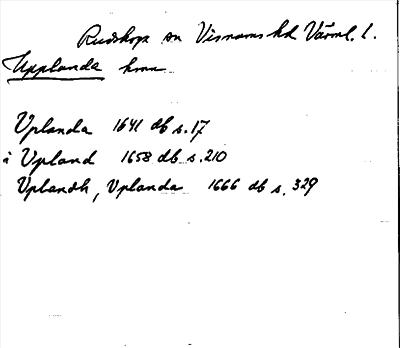 Rudskoga sn Visnums hd Värml. l.
Upplanda hmn
Vplanda 1641 db s.17
i Vpland 1658 db s.210
Vplandh, Vplanda 1666 db s.329